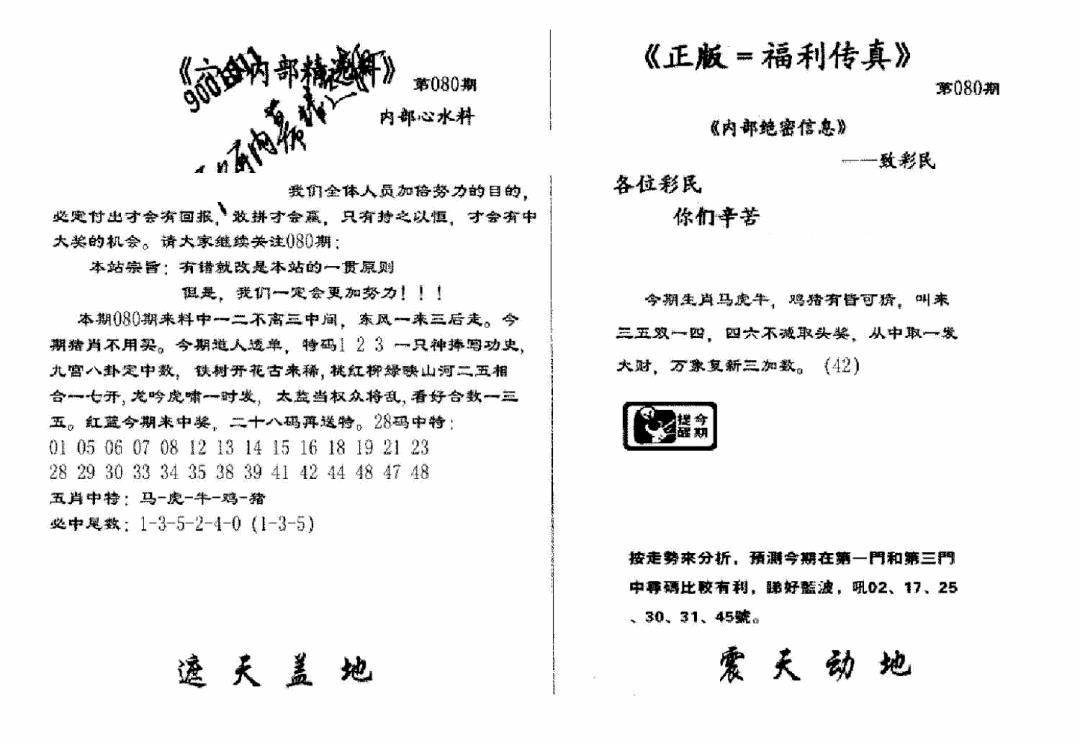 内部精
第080期
内部心水料
我们全体人员加倍努力的目的，
必定付出才会有回报，敢拼才会赢，只有持之以恒，才会有中
大奖的机会。请大家继续关注080期：
本站宗旨：有错就改是本站的一贯原则
但是，我们一定会更加努力！！！
本期080期来料中一二不离三中间，东风一来三后走。今
期猪肖不用买。今期道人透单，特码1 2 3 一只神捧写功史，
九宫八卦定中数，铁树开花古来稀,桃红柳绿映山河二五相
合一七开,龙吟虎啸一时发，太监当权众将乱,看好合数一三
五。红蓝今期来中奖，二十八码再送特。28码中特：
01 05 06 07 08 12 13 14 15 16 18 19 21 23
28 29 30 33 34 35 38 39 41 42 44 48 47 48
五肖中特：马-虎-牛-鸡-猪
必中尾数：1-3-5-2-4-0 (1-3-5)
遮天盖地
《正版=福利传真》
第080期
《内部绝密信息》
——致彩民
各位彩民
你们辛苦
今期生肖马虎牛，鸡猪有皆可猜，叫来
三五双一四，四六不减取头奖，从中取一发
大财，万象复新三加数。(42)
今期
提醒
按走勢來分析，預測今期在第一門和第三門
中尋碼比較有利，睇好藍波，吼02、17、25
、30、31、45號。
震天动地